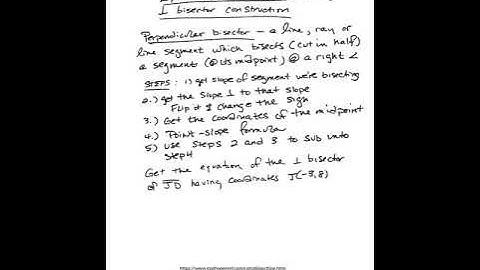 ⊥ bisector construction
Perpendicular bisector - a line, ray or
line segment which bisects (cut in half)
a segment (@ its midpoint) @ a right ∠
STEPS: 1) get slope of segment we're bisecting
2.) get the slope ⊥ to that slope
Flip it & change the sign
3.) Get the coordinates of the midpoint
4.) Point-slope formula
5.) use steps 2 and 3 to sub into
step 4
Get the equation of the ⊥ bisector
of JD having coordinates J(-3,8)